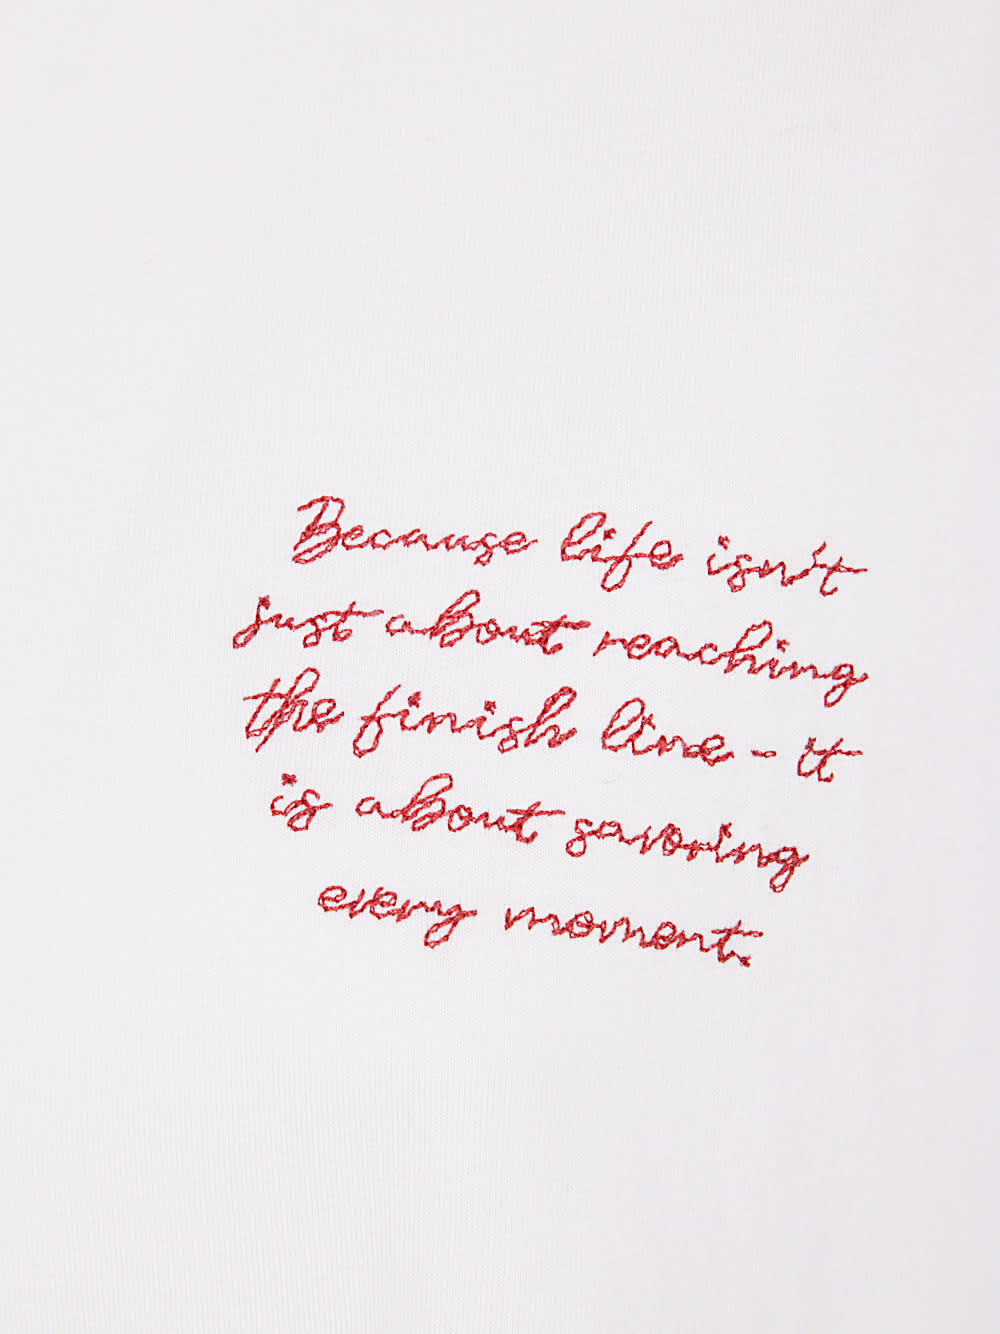 Because life isn't
just about reaching
the finish line - it
is about savoring
every moment.